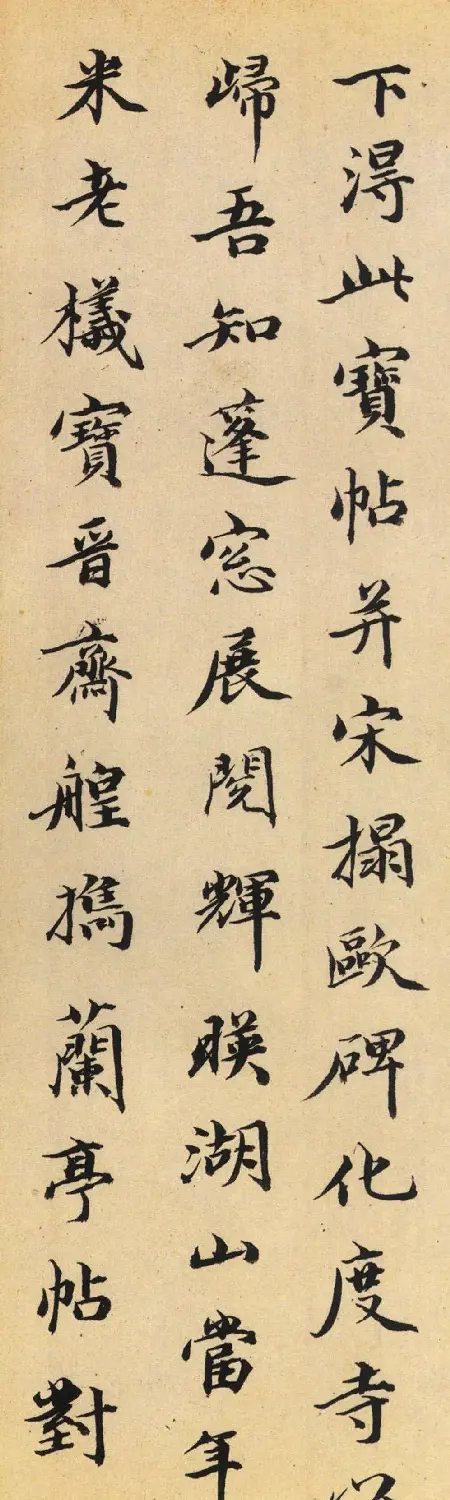 下得此寶帖并宋搨歐碑化度寺
歸吾知蓬窓展閱輝暎湖山當年
米老檥寶晋齋艎攜蘭亭帖對